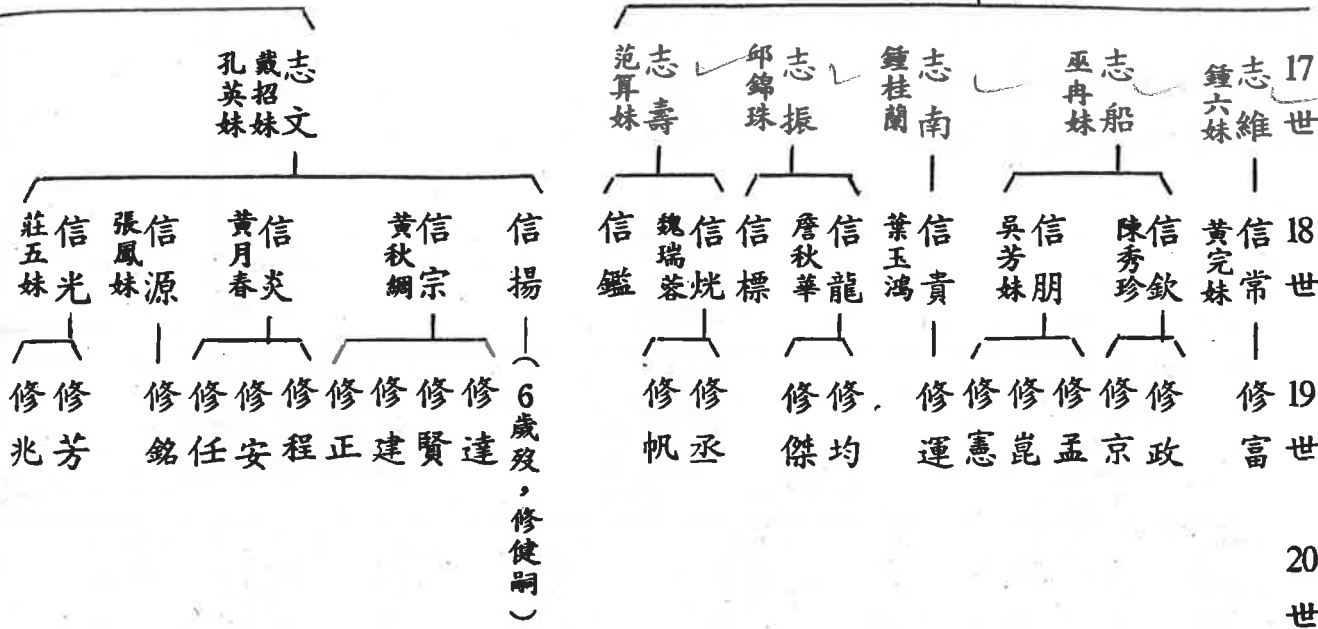 17世
志維
鍾六妹
志船
巫冉妹
志南
鍾桂蘭
志振
邱錦珠
志壽
范算妹
志文
戴招妹
孔英妹
18世
信常
黃完妹
信欽
陳秀珍
信朋
吳芳妹
信貴
葉玉鴻
信龍
詹秋華
信標
信烑
魏瑞蓉
信鑑
信揚
信宗
黃秋綢
信炎
黃月春
信源
張鳳妹
信光
莊五妹
19世
修富
修政
修京
修孟
修崑
修憲
修運
修均
修傑
修丞
修帆
(6歲歿,修健嗣)
修達
修賢
修建
修正
修程
修安
修任
修銘
修芳
修兆
20世